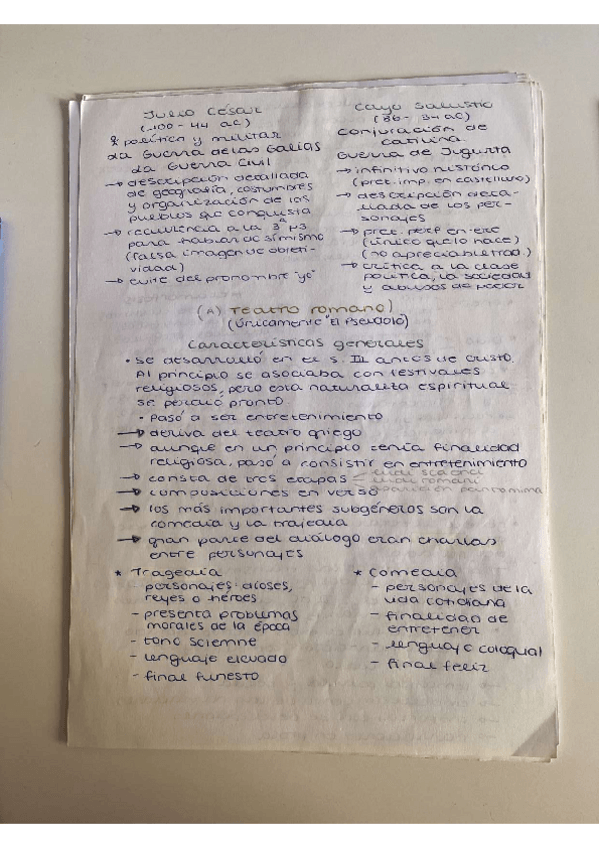 Julio César
(100 - 44 ac)
político y militar
La Guerra de las Galias
La Guerra Civil
→ descripción detallada
de geografía, costumbres
y organización de los
pueblos que conquista
→ recurrencia a la 3ª
para hablar de sí mismo
(falsa imagen de objeti-
vidad)
→ evite del pronombre "yo"
Cayo Salustio
(86 - 34 ac)
Conjuración de
Catilina.
Guerra de Jugurta
→ infinitivo histórico
(pret. imp. en castellano)
→ descripción deta-
llada de los per-
sonajes
→ pret. perf en -ere
(único que lo hace)
(no apreciable trad.)
→ crítica a la clase
política, la sociedad
y abusos de poder
(A) Teatro romano)
(únicamente "El Pseudolo)
Características generales
• se desarrolló en el s. III antes de cristo.
Al principio se asociaba con festivales
religiosos, pero esta naturaleza espiritual
se perdió pronto.
• Pasó a ser entretenimiento
→ deriva del teatro griego
→ aunque en un principio tenía finalidad
religiosa, pasó a consistir en entretenimiento
→ consta de tres etapas - ludi scaenici
ludi romani
aparición pantomima
→ composiciones en verso
→ los más importantes subgéneros son la
comedia y la trajedia
→ gran parte del diálogo eran charlas
entre personajes
* Tragedia
- personajes: dioses,
reyes o héroes
- presenta problemas
morales de la época
- tono solemne
- lenguaje elevado
- final funesto
* Comedia
- personajes de la
vida cotidiana
- finalidad de
entretener
- lenguaje coloquial
- final feliz